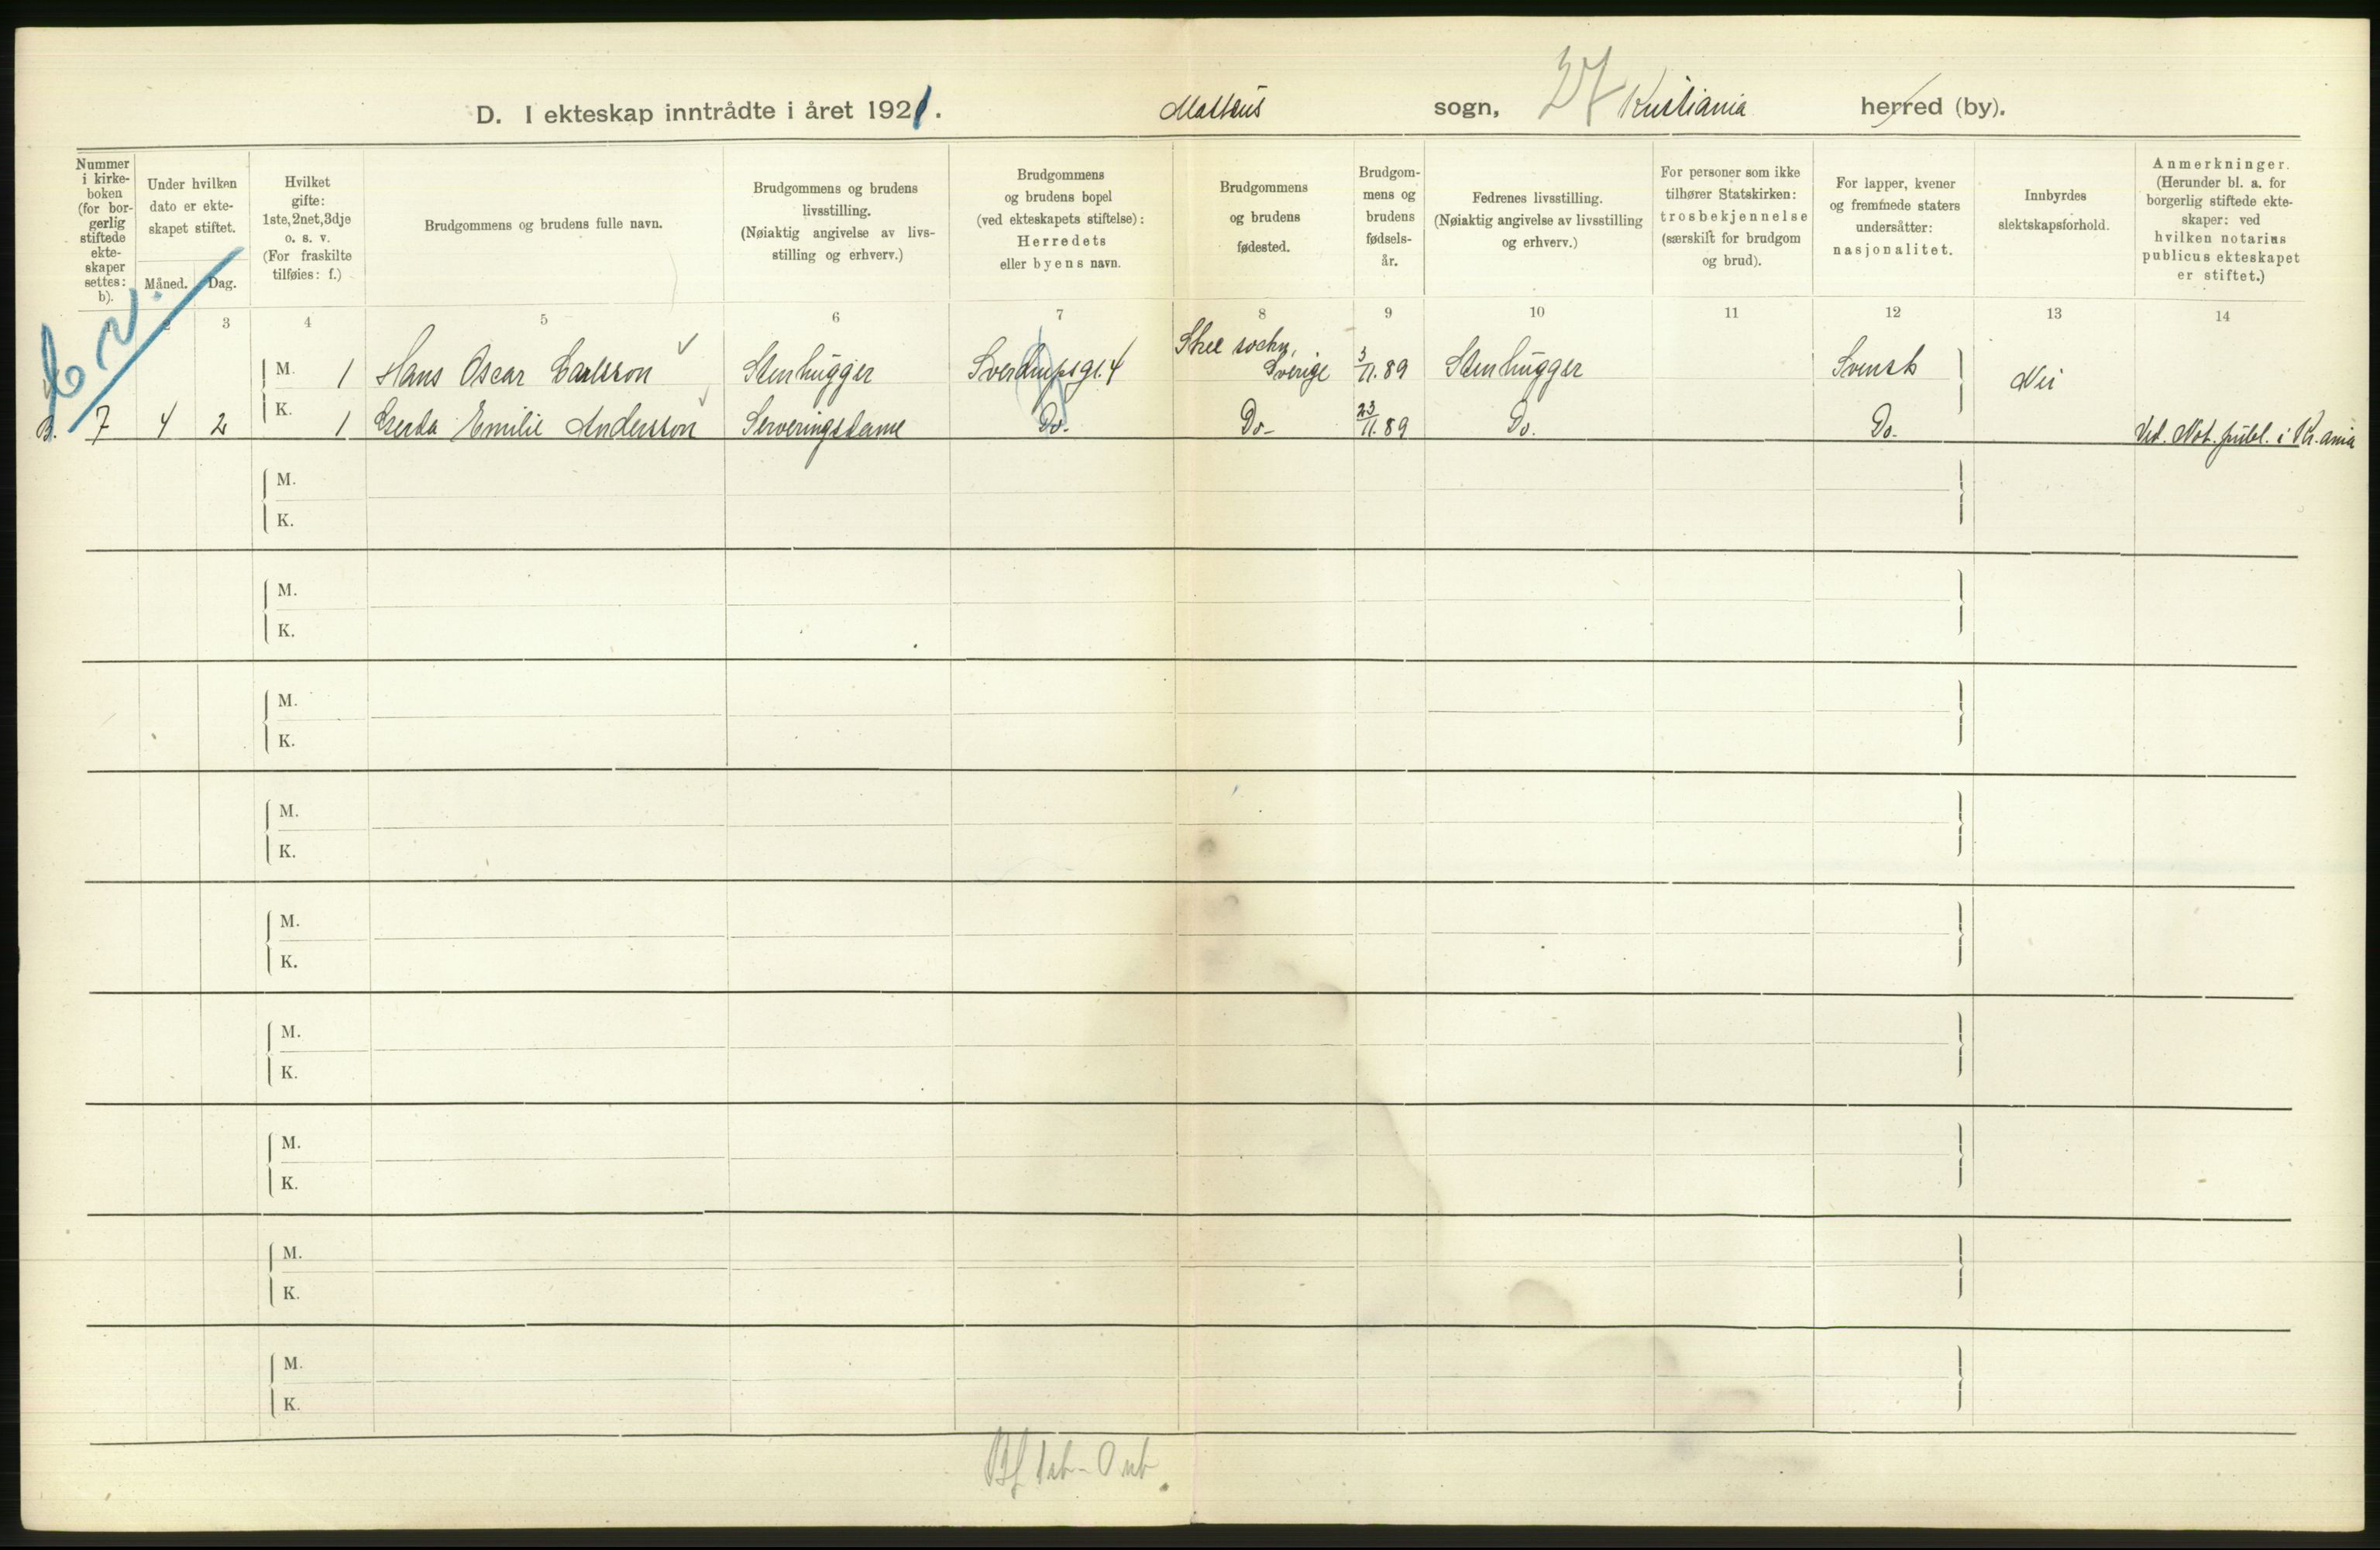 D. I ekteskap inntrådte i året 1921. Matteus sogn, 27 Kristiania herred (by).
Nummer
i kirke-
boken
(for bor-
gerlig
stiftede
ekte-
skaper
settes:
b).
Under hvilken
dato er ekte-
skapet stiftet.
Måned. Dag.
Hvilket
gifte:
1ste, 2net, 3dje
o. s. v.
(For fraskilte
tilføies: f.)
Brudgommens og brudens fulle navn.
Brudgommens og brudens
livsstilling.
(Nøiaktig angivelse av livs-
stilling og erhverv.)
Brudgommens
og brudens bopel
(ved ekteskapets stiftelse):
Herredets
eller byens navn.
Brudgommens
og brudens
fødested.
Brudgom-
mens og
brudens
fødsels-
år.
Fedrenes livsstilling.
(Nøiaktig angivelse av livsstilling
og erhverv.)
For personer som ikke
tilhører Statskirken:
trosbekjennelse
(særskilt for brudgom
og brud).
For lapper, kvener
og fremmede staters
undersåtter:
nasjonalitet.
Innbyrdes
slektskapsforhold.
Anmerkninger.
(Herunder bl. a. for
borgerlig stiftede ekte-
skaper: ved
hvilken notarius
publicus ekteskapet
er stiftet.)
1 2 3 4 5 6 7 8 9 10 11 12 13 14
M. 1 Hans Oscar Carlsson Stenhugger Sverdrupsgt. 4 Skee sockn, Sverige 3/11.89 Stenhugger Svensk Nei
B. 7 4 2 K. 1 Gerda Emilie Andersson Serveringsdame Do. Do- 23/11.89 Do. Do. Ved. Not. publ. i Kr.ania
M.
K.
M.
K.
M.
K.
M.
K.
M.
K.
M.
K.
M.
K.
M.
K.
M.
K.